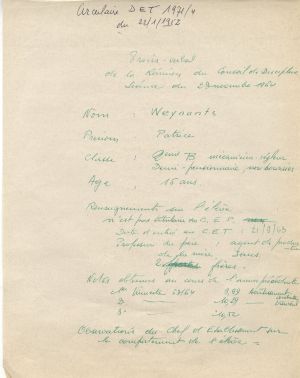 Circulaire DET 1971/4
du 22/1/1952
Procès-verbal
de la Réunion du Conseil de Discipline
Séance du 2 décembre 1964
Nom : Weynants
Prénom : Patrice
Classe : 2ème B mécanicien-
Demi-pensionnaire non boursier
Age : 15 ans
Renseignements sur l'élève
n'est pas titulaire du C.E.P.
Date d'entrée au C.E.T :
Profession du père : agent de
de la mère
frères.
Notes obtenues au cours de l'année précédente
1er trimestre 63/64
2°
3°
Observations du Chef d'Etablissement sur
le comportement de l'élève =